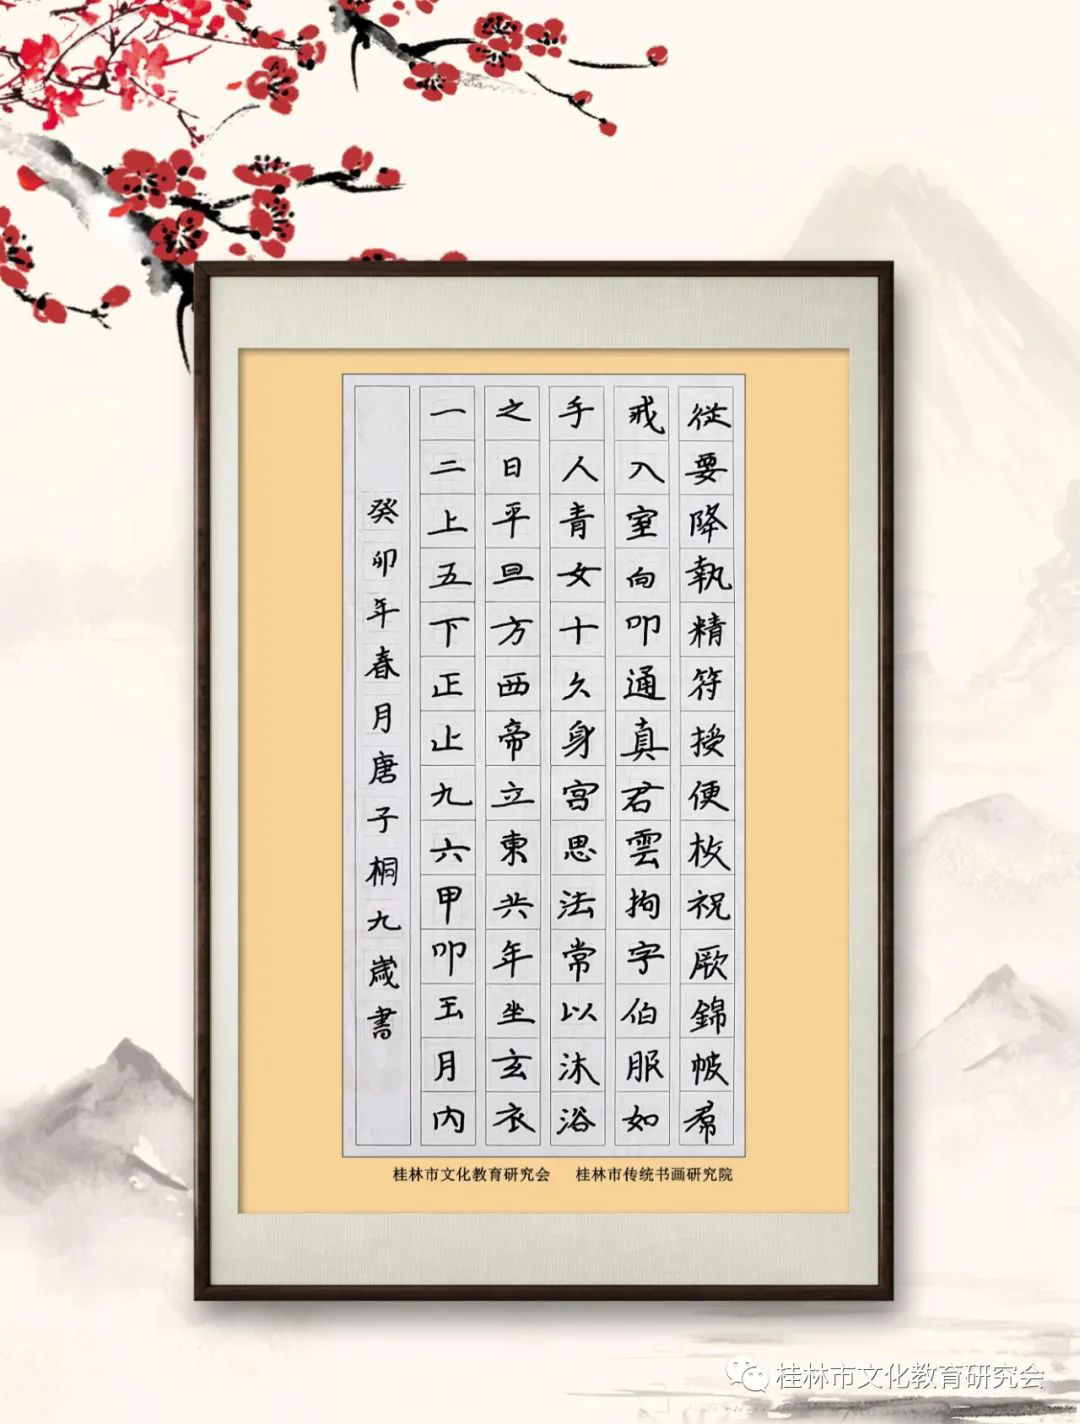 從要降執精符授便枚祝厥錦帔
戒入室向叩通真君雲拘字伯服如
手人青女十久身宫思法常以沐浴
之日平旦方西帝立東共年坐玄衣
一二上五下正止九六甲叩玉月内
癸卯年春月唐子桐九歲書
桂林市文化教育研究会 桂林市传统书画研究院
桂林市文化教育研究会